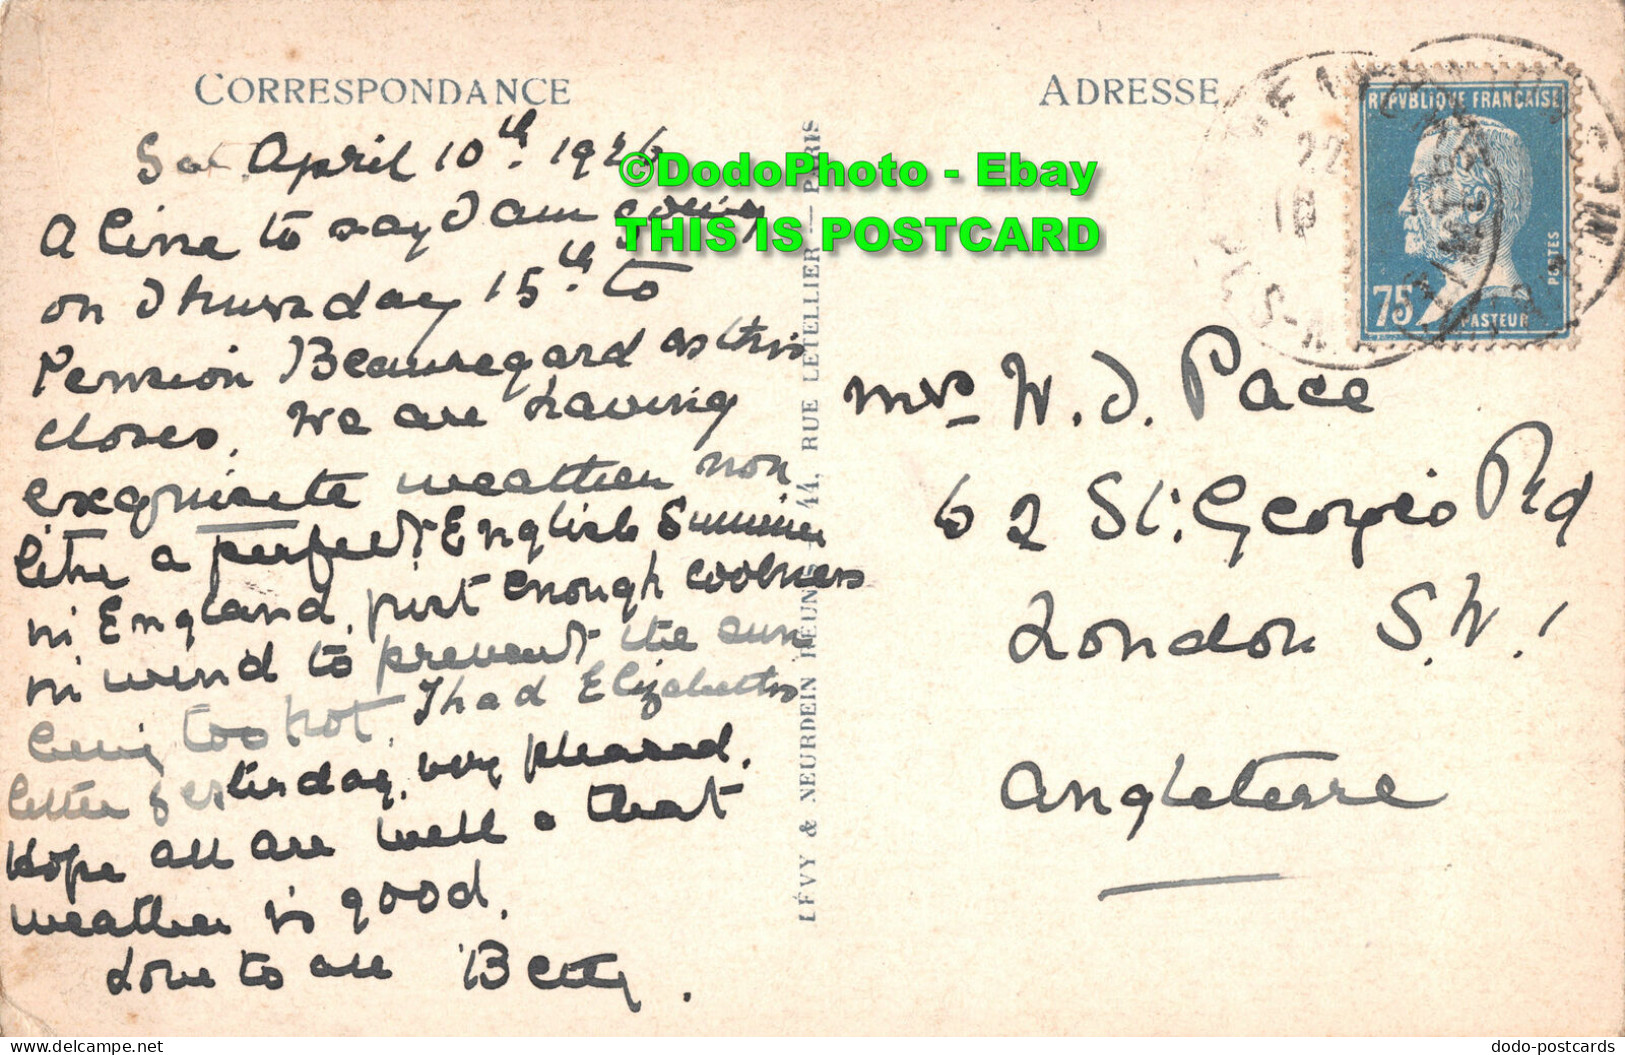 CORRESPONDANCE
Sat. April 10th. 1926
A line to say I am going
on Thursday 15th. to
Pension Beauregard as this
closes. We are having
exquisite weather now
like a perfect English Summer
in England, just enough coolness
in wind to prevent the sun
being too hot. I had Elizabeth's
letter yesterday, very pleased.
Hope all are well & that
weather is good.
Love to all Betty.
LÉVY & NEURDEIN RÉUNIS, 44, RUE LETELLIER — PARIS
ADRESSE
REPVBLIQVE FRANÇAISE
POSTES
75
PASTEUR
22
10
Mrs W. J. Pace
62 St. George's Rd
London S.W.1
Angleterre
©DodoPhoto - Ebay
THIS IS POSTCARD
dodo-postcards